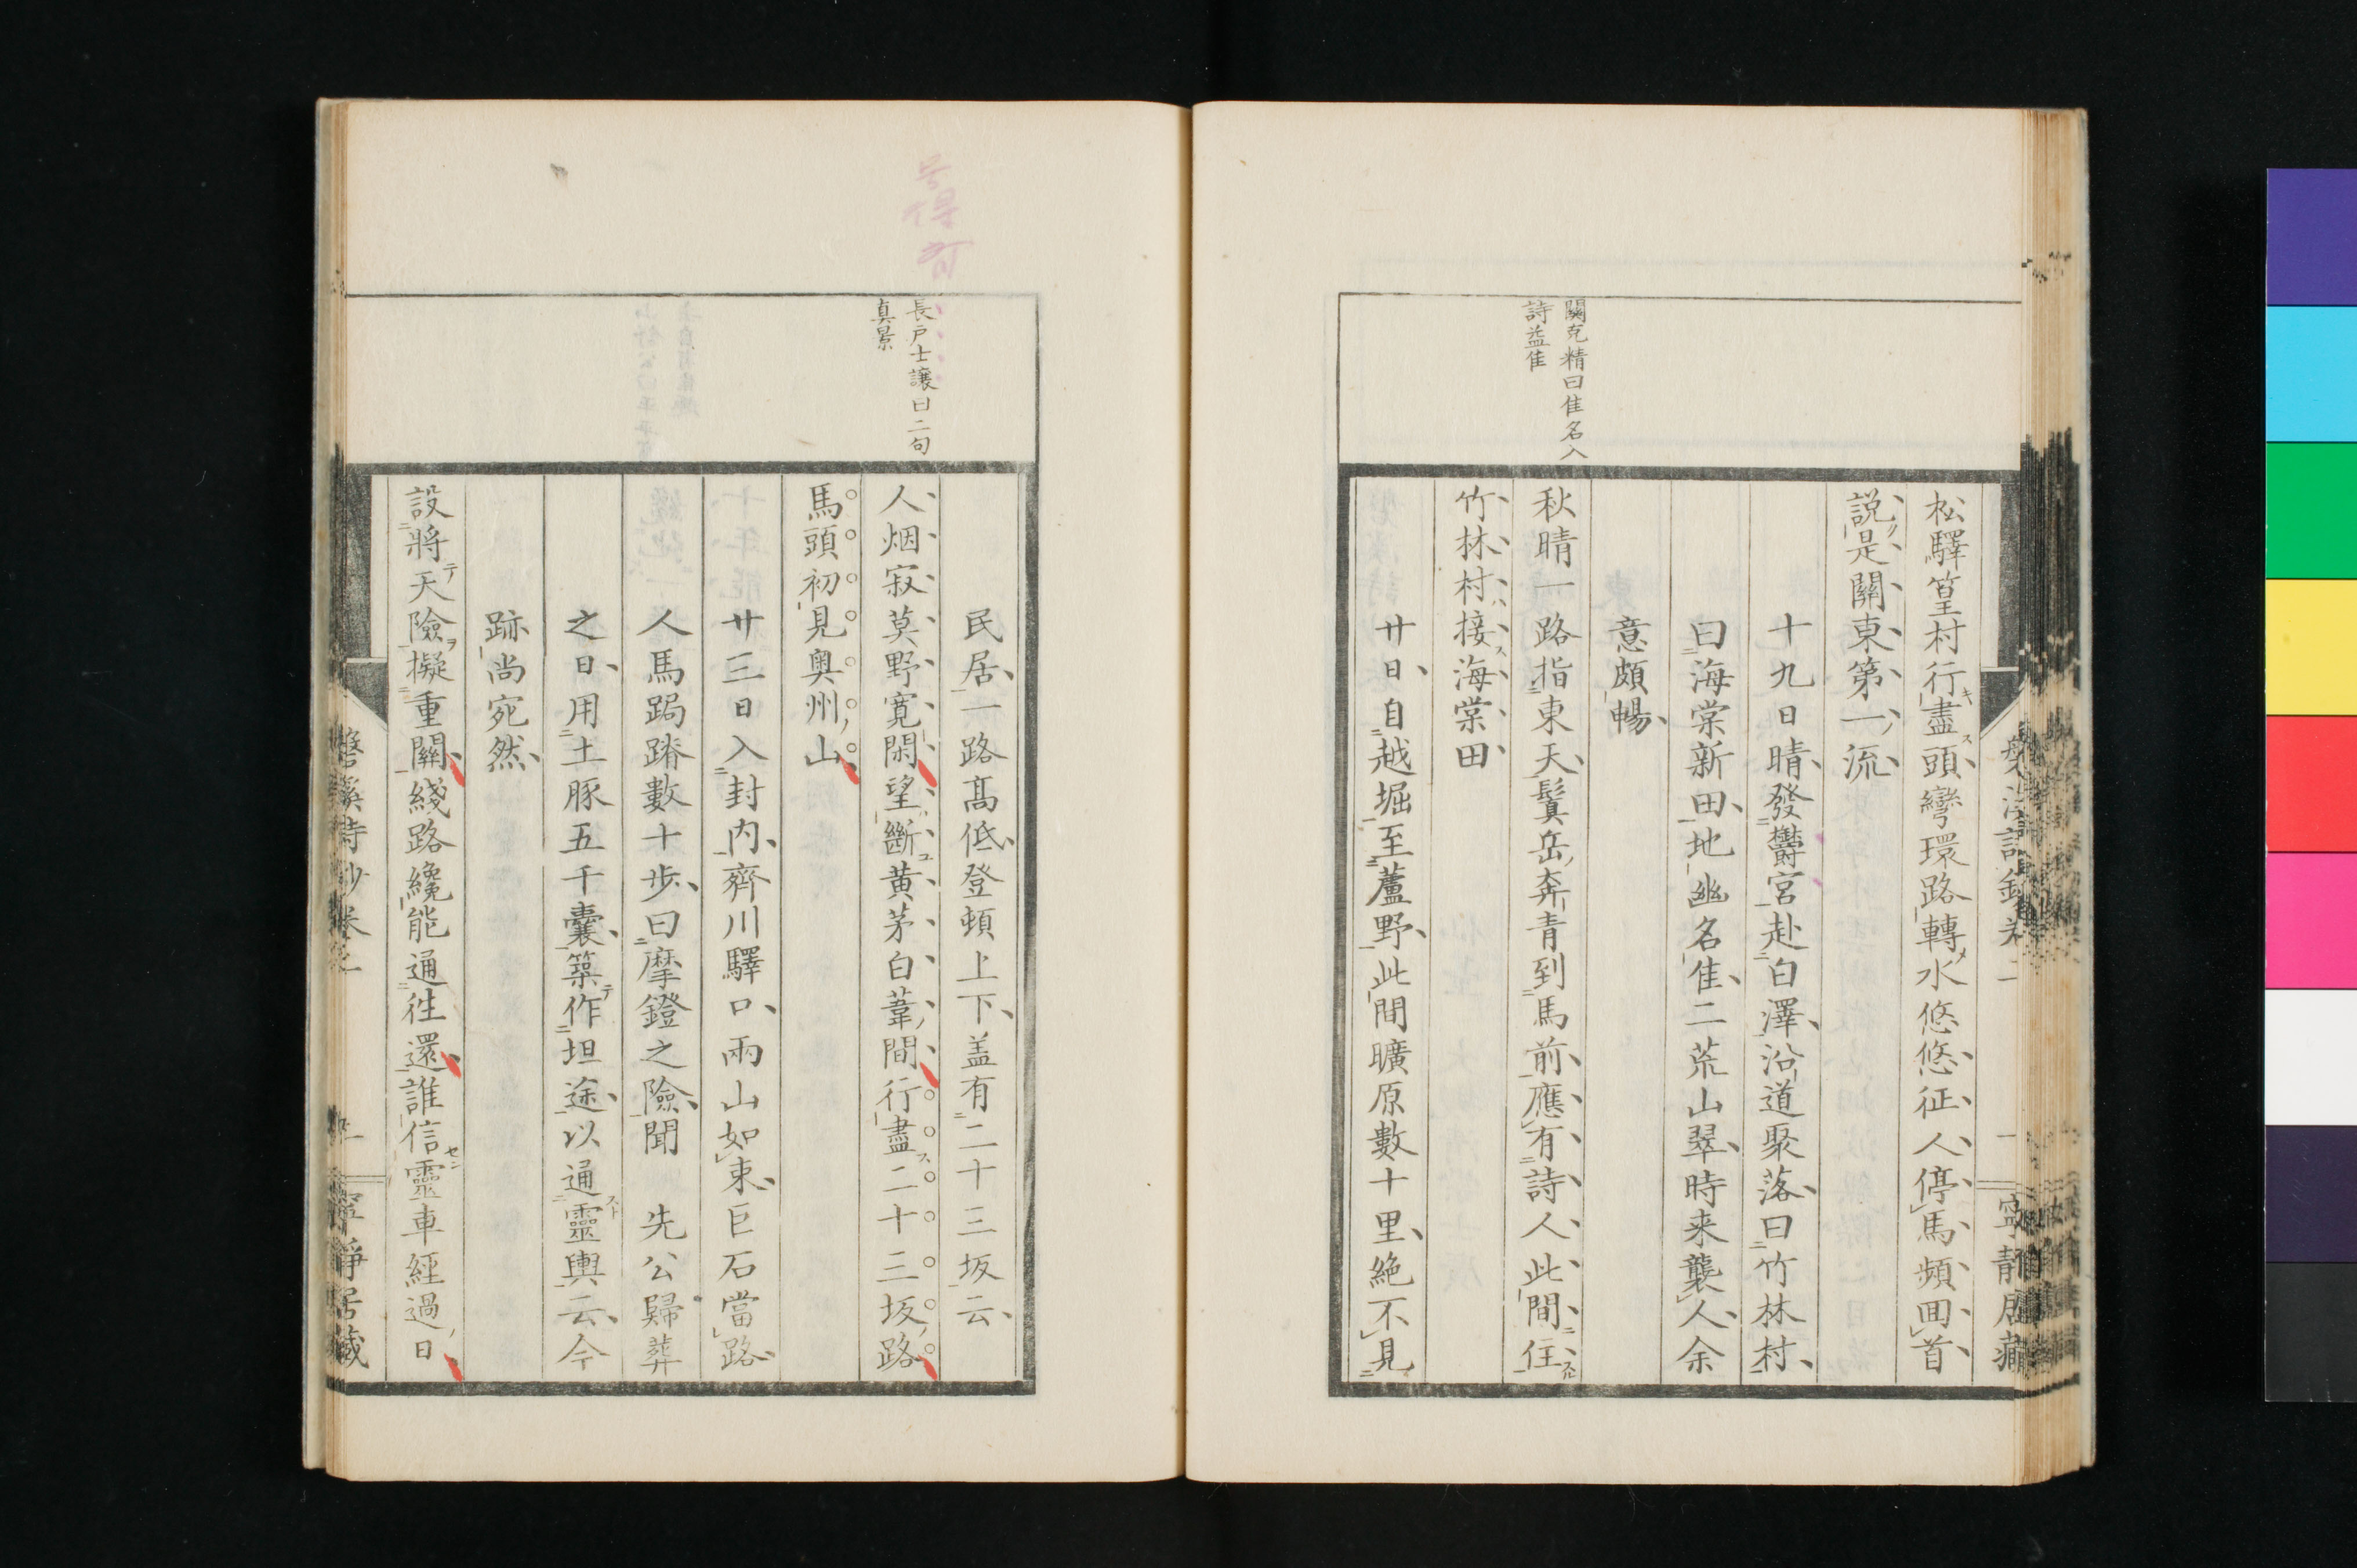 關克精曰佳名入
詩益佳
松驛篁村行盡頭彎環路轉水悠悠征人停馬頻囬首
説是關東第一流
十九日晴發欝宮赴白澤沿道聚落曰竹林村
曰海棠新田地幽名佳二荒山翠時来襲人余
意頗暢
秋晴一路指東天鬒岳奔青到馬前應有詩人此間住
竹林村接海棠田
廿日自越堀至蘆野此間曠原數十里絶不見
長戸士讓曰二句
真景
民居一路髙低登頓上下盖有二十三坂云
人烟寂莫野寛閑望斷黄茅白葦間行盡二十三坂路
馬頭初見奥州山
廿三日入封内齊川驛口兩山如束巨石當路
人馬跼蹐數十歩曰摩鐙之險聞　先公歸葬
之日用土豚五千嚢築作坦途以通靈輿云今
跡尚宛然
設將天險擬重關綫路纔能通徃還誰信靈車經過日
磐溪詩鈔卷二
寧靜居藏